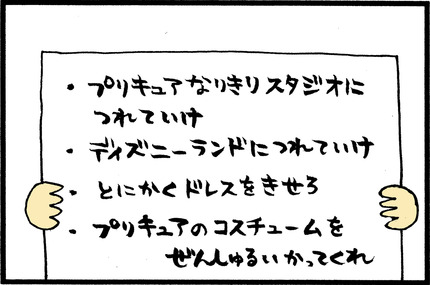 ・プリキュアなりきりスタジオに
つれていけ
・ディズニーランドにつれていけ
・とにかくドレスをきせろ
・プリキュアのコスチュームを
ぜんしゅるいかってくれ